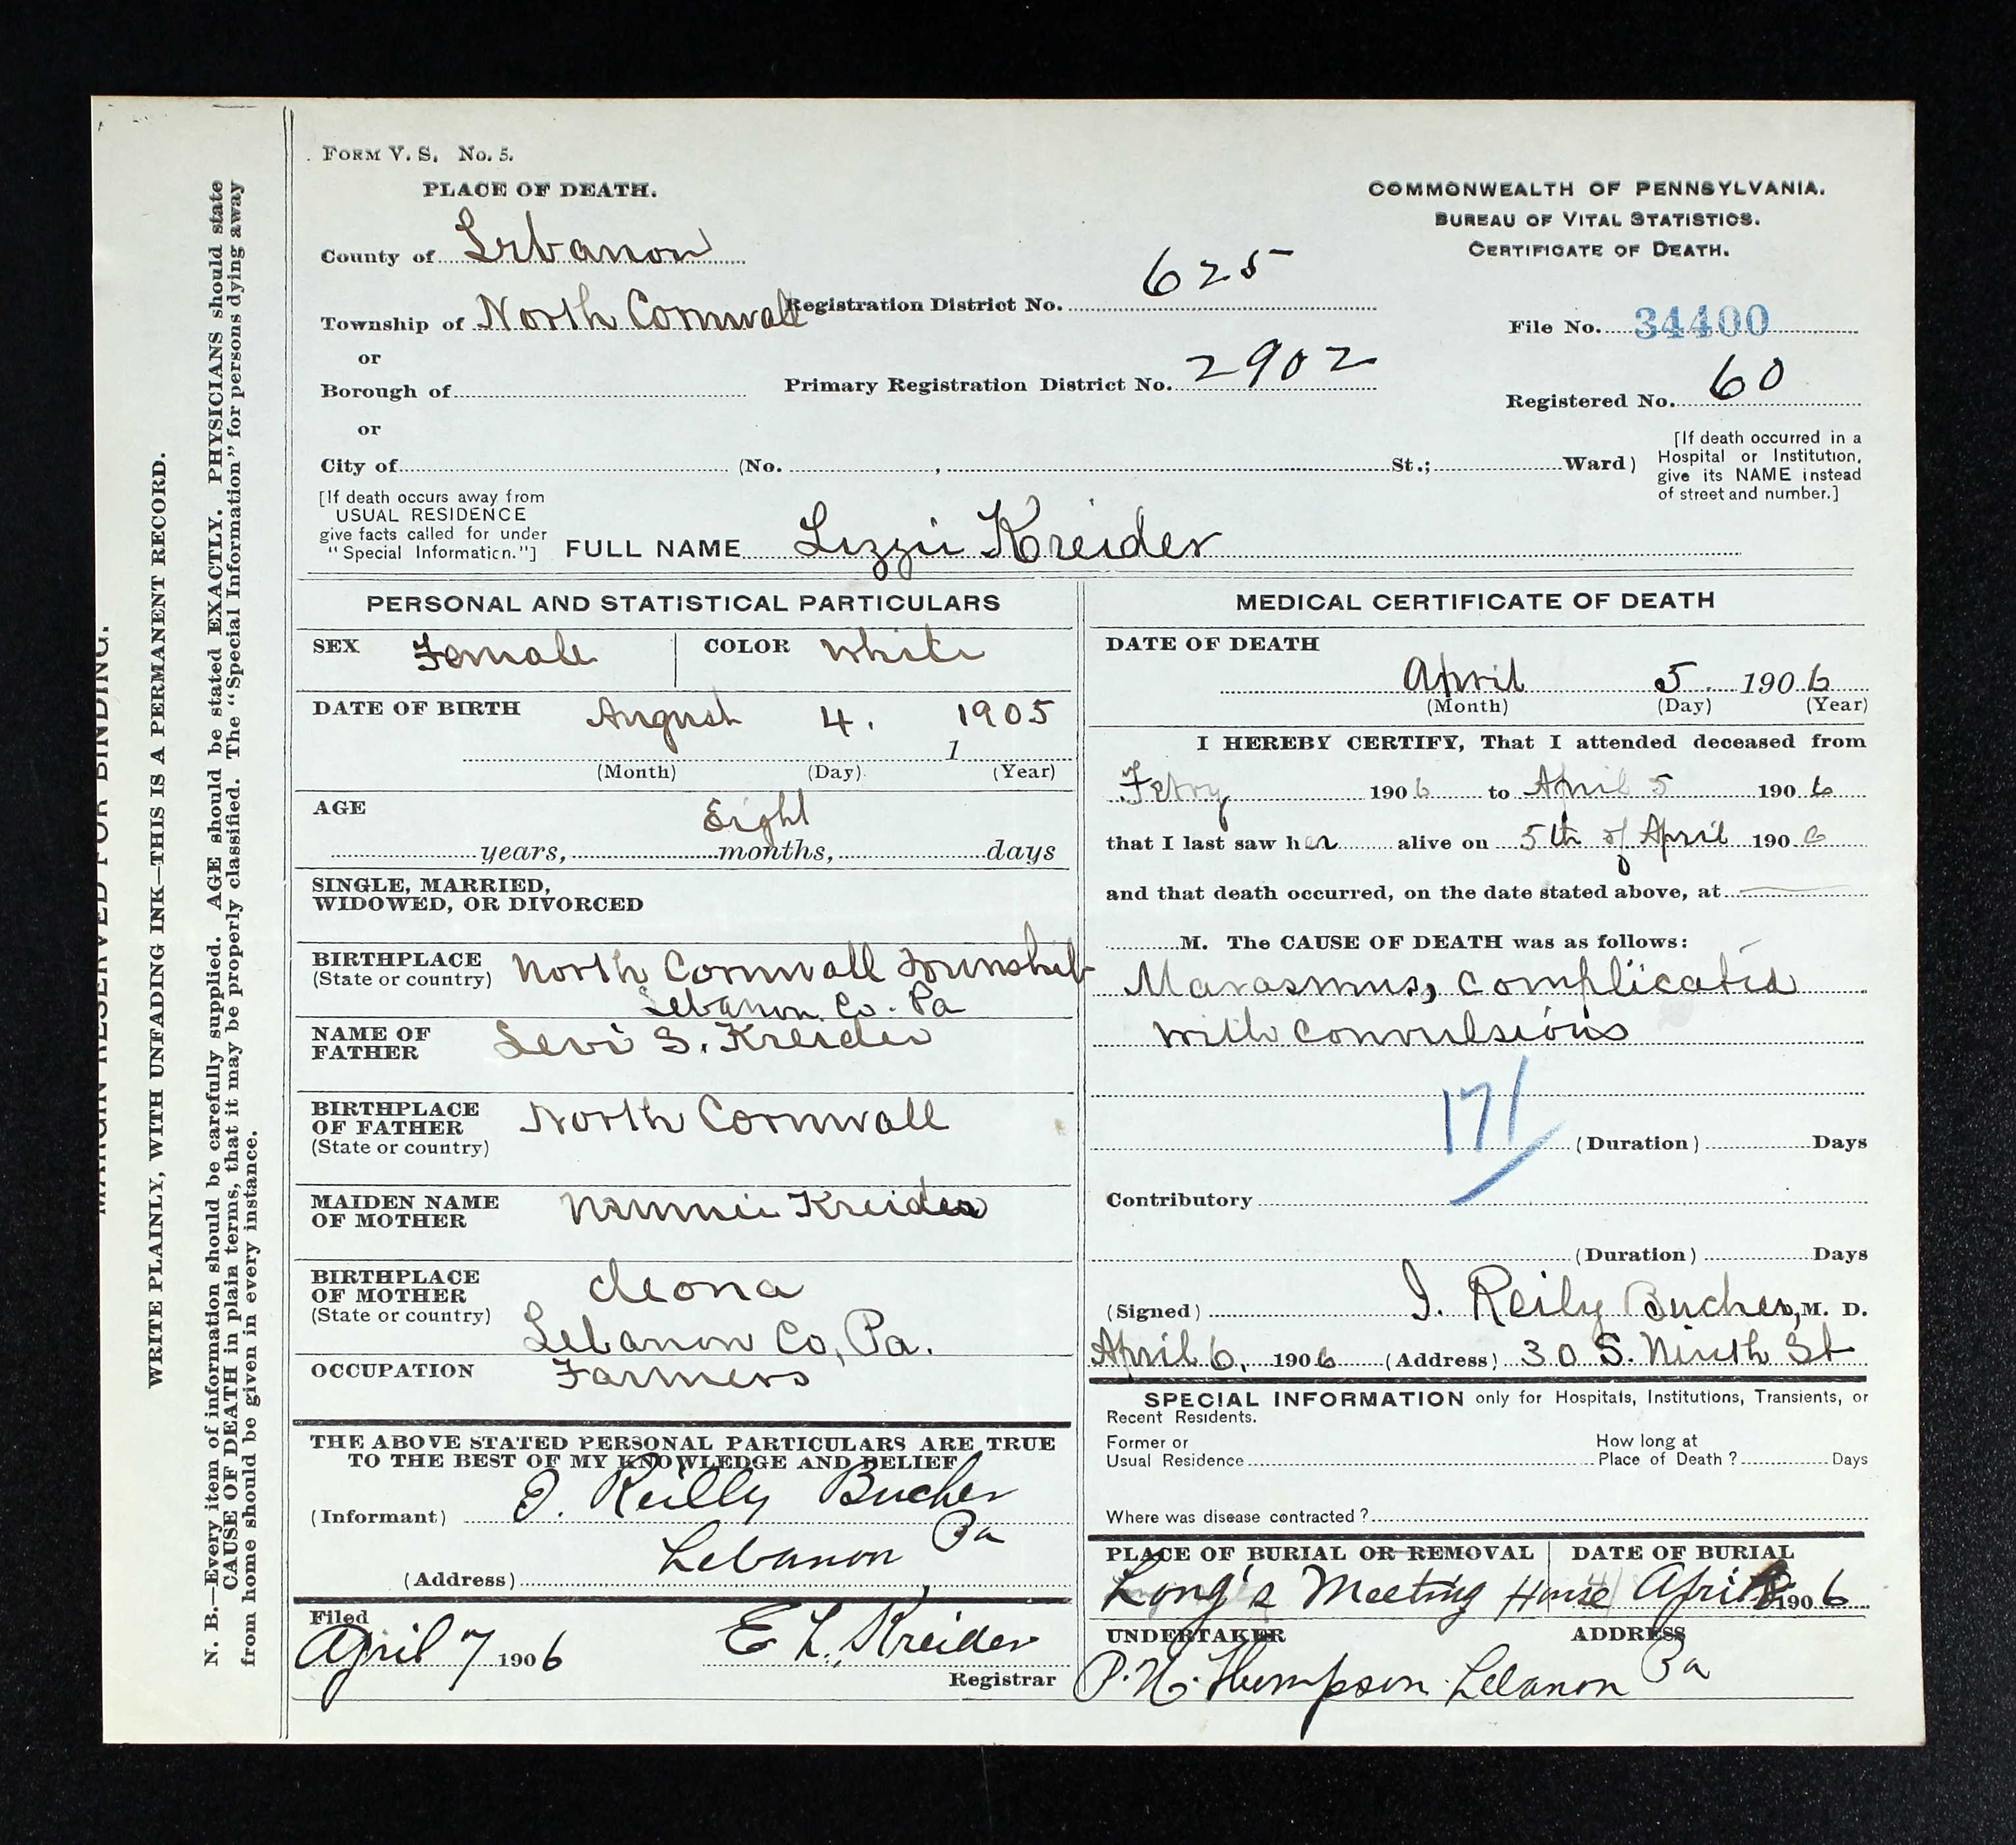 MARGIN RESERVED FOR BINDING.
WRITE PLAINLY, WITH UNFADING INK—THIS IS A PERMANENT RECORD.
N. B.—Every item of information should be carefully supplied. AGE should be stated EXACTLY. PHYSICIANS should state
CAUSE OF DEATH in plain terms, that it may be properly classified. The "Special Information" for persons dying away
from home should be given in every instance.
FORM V. S. No. 5.
PLACE OF DEATH.
COMMONWEALTH OF PENNSYLVANIA.
BUREAU OF VITAL STATISTICS.
CERTIFICATE OF DEATH.
County of Lebanon
Township of North Cornwall Registration District No. 625
File No. 34400
or
Borough of Primary Registration District No. 2902
Registered No. 60
or
City of (No. , St.; Ward)
[If death occurred in a
Hospital or Institution,
give its NAME instead
of street and number.]
[If death occurs away from
USUAL RESIDENCE
give facts called for under
"Special Information."]
FULL NAME Lizzie Kreider
PERSONAL AND STATISTICAL PARTICULARS
SEX Female COLOR White
DATE OF BIRTH August 4. 1905
1
(Month) (Day) (Year)
AGE Eight
years, months, days
SINGLE, MARRIED,
WIDOWED, OR DIVORCED
BIRTHPLACE
(State or country) North Cornwall Township
Lebanon Co. Pa
NAME OF
FATHER Levi S. Kreider
BIRTHPLACE
OF FATHER
(State or country) North Cornwall
MAIDEN NAME
OF MOTHER Nannie Kreider
BIRTHPLACE
OF MOTHER
(State or country) Cleona
Lebanon Co, Pa.
OCCUPATION Farmers
THE ABOVE STATED PERSONAL PARTICULARS ARE TRUE
TO THE BEST OF MY KNOWLEDGE AND BELIEF
(Informant) I. Reilly Bucher
(Address) Lebanon Pa
Filed
April 7 1906 E L, Kreider
Registrar
MEDICAL CERTIFICATE OF DEATH
DATE OF DEATH
April 5. 1906
(Month) (Day) (Year)
I HEREBY CERTIFY, That I attended deceased from
Febry 1906 to April 5 1906
that I last saw her alive on 5th of April 1906
and that death occurred, on the date stated above, at
M. The CAUSE OF DEATH was as follows:
Marasmus, Complicated
with Convulsions
171
(Duration) Days
Contributory
(Duration) Days
(Signed) I. Reily Bucher, M. D.
April 6, 1906 (Address) 30 S. Ninth St
SPECIAL INFORMATION only for Hospitals, Institutions, Transients, or
Recent Residents.
Former or
Usual Residence
How long at
Place of Death? Days
Where was disease contracted?
PLACE OF BURIAL OR REMOVAL DATE OF BURIAL
Long's Meeting House April 8 1906
UNDERTAKER ADDRESS
P. H. Thompson Lebanon Pa